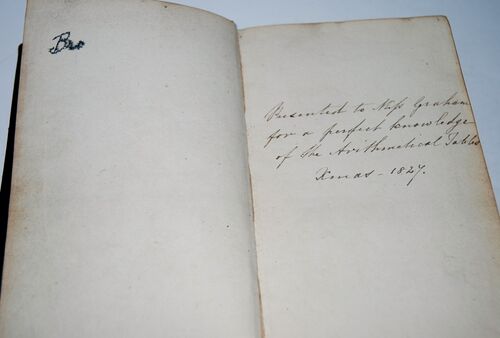 Presented to Miss Graham
for a perfect knowledge
of the Arithmetical Tables
Xmas - 1827.